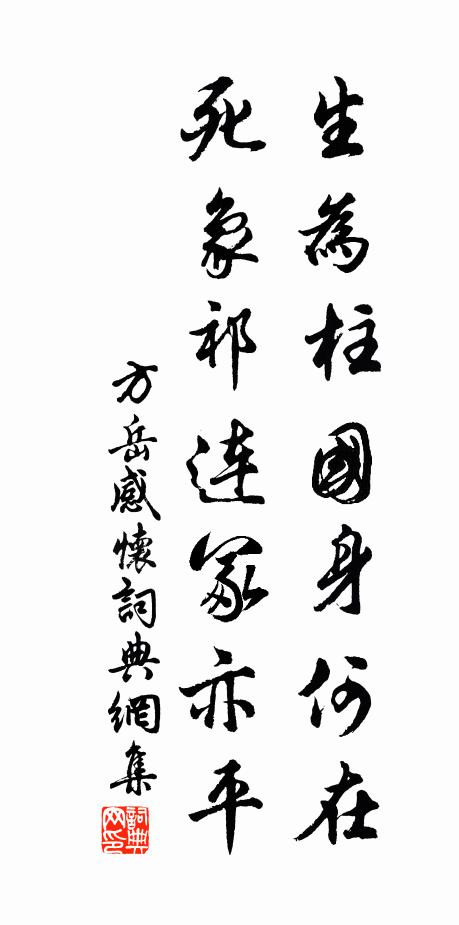 生為柱國身何在
死象祁連冢亦平
方岳感懷詞典網集
詞典網印